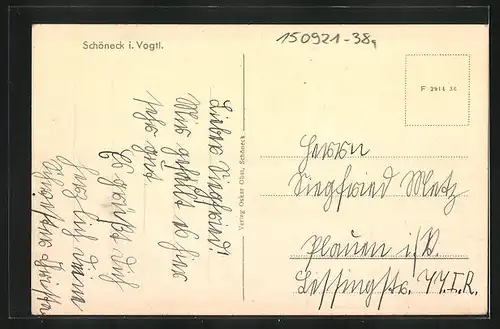 Schöneck i. Vogtl.
150921-38
F 2914 36
Verlag Oskar Görl, Schöneck
Lieber Siegfried!
Mir gefällt es hier
sehr gut.
Es grüßt Dich
herzlich Deine
Herrn
Siegfried Metz
Plauen i/V.
Lessingstr. 77 I. R.